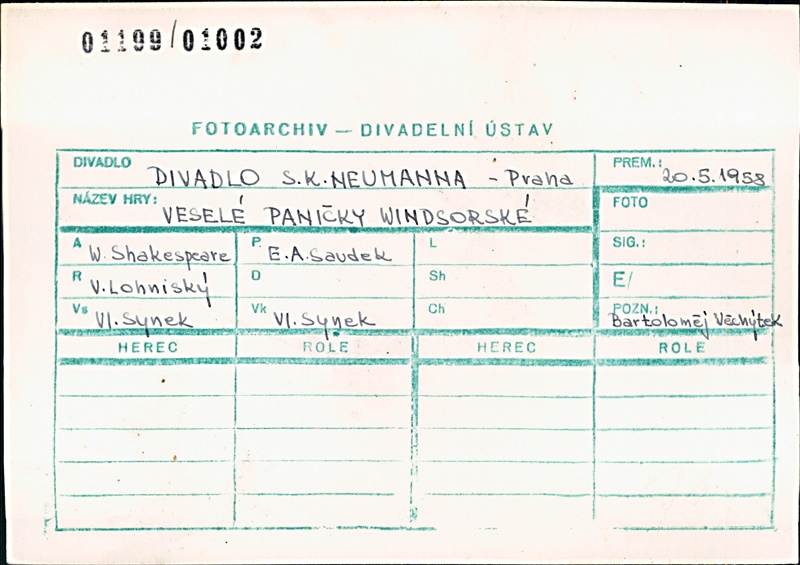 01199/01002
FOTOARCHIV — DIVADELNÍ ÚSTAV
DIVADLO DIVADLO S.K.NEUMANNA - Praha
PREM.: 20.5.1958
NÁZEV HRY: VESELÉ PANIČKY WINDSORSKÉ
FOTO
A W. Shakespeare P. E.A. Saudek L SIG.:
R V. Lohniský D Sh E/
Vs Vl. Synek Vk Vl. Synek Ch POZN.: Bartoloměj Věchýtek
HEREC ROLE HEREC ROLE